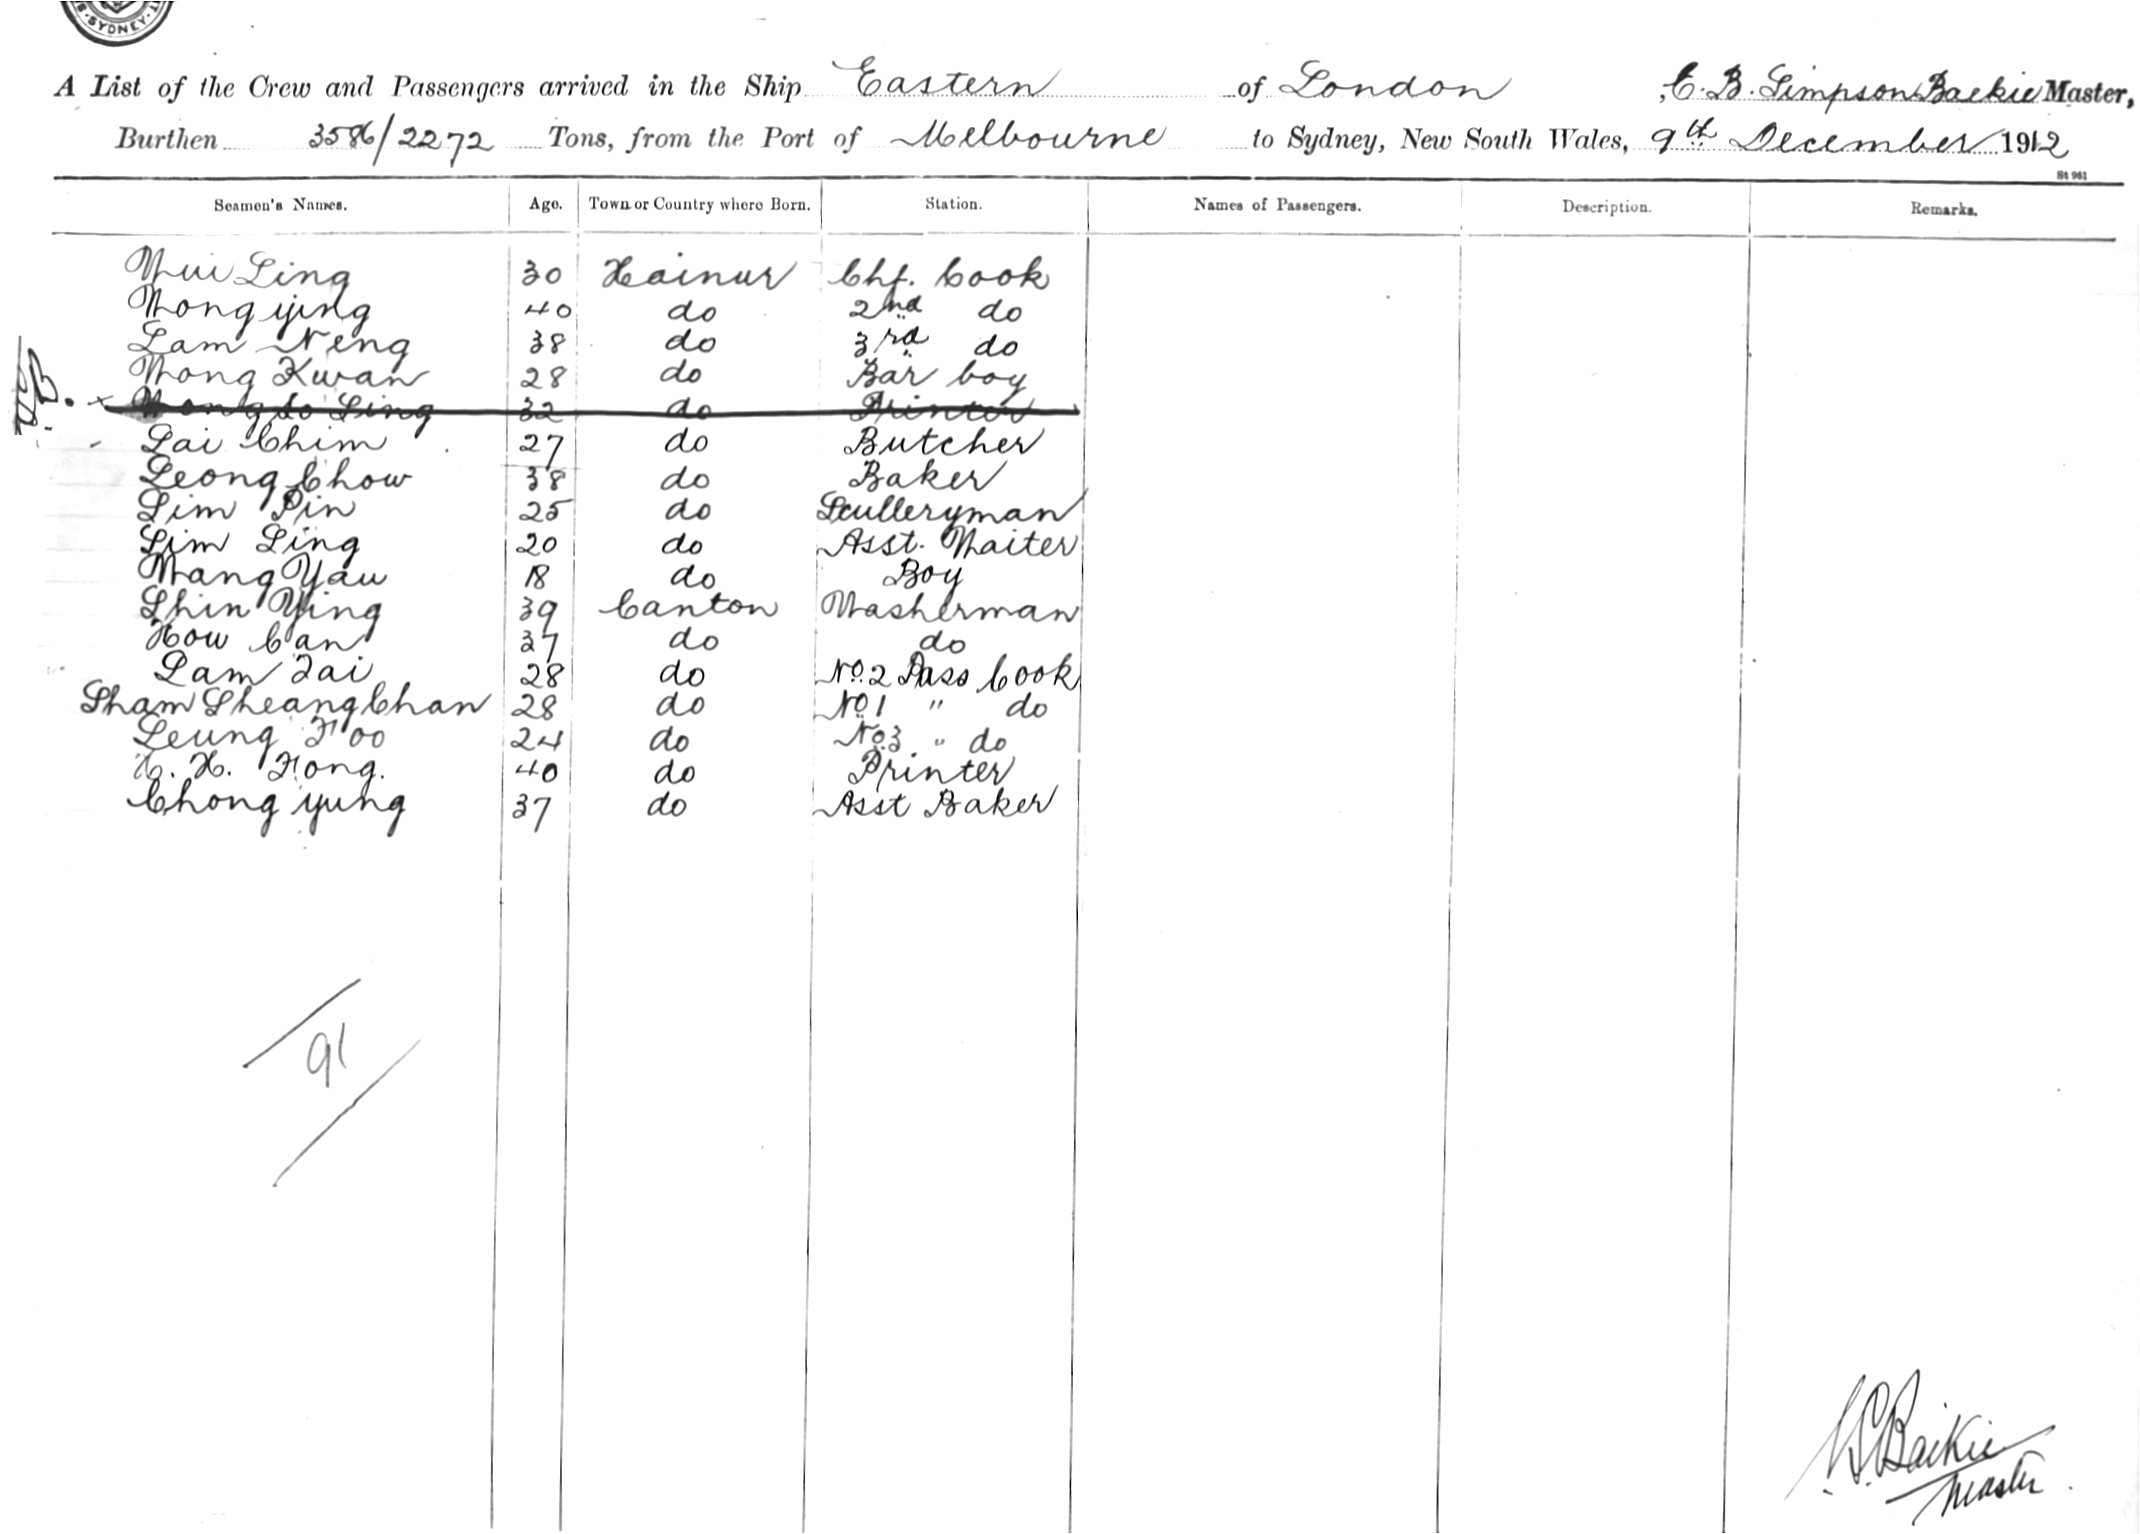 SYDNEY
A List of the Crew and Passengers arrived in the Ship Eastern of London , C. B. Simpson Baikie Master,
Burthen 3586/2272 Tons, from the Port of Melbourne to Sydney, New South Wales, 9th December 1912
St 961
Seamen's Names. Age. Town or Country where Born. Station. Names of Passengers. Description. Remarks.
Wui Ling 30 Hainur Chf. Cook
Wong ying 40 do 2nd do
Lam Neng 38 do 3rd do
Wong Kwan 28 do Bar boy
x Wong So Sing 32 do Printer
Lai Chim 27 do Butcher
Leong Chow 38 do Baker
Lim Pin 25 do Sculleryman
Lim Ling 20 do Asst. Waiter
Wang Yau 18 do Boy
Shin Ying 39 Canton Washerman
How Can 37 do do
Lam Tai 28 do No. 2 Pass Cook
Sham Sheang Chan 28 do No 1 " do
Leung Foo 24 do No. 3 " do
H. H. Fong. 40 do Printer
Chong yung 37 do Asst Baker
91
Baikie
Master